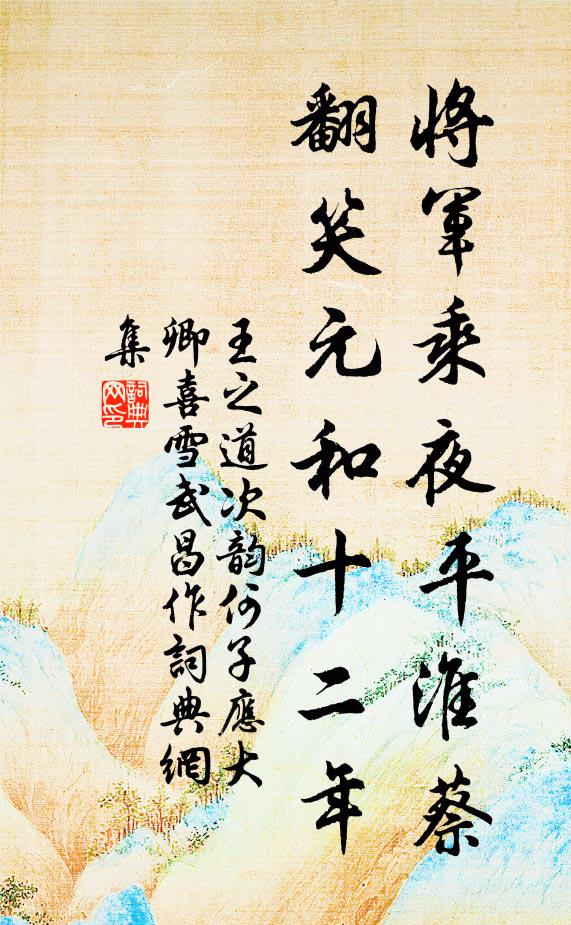 將軍乘夜平淮蔡
翻笑元和十二年
王之道次韵何子應大
卿喜雪武昌作詞典網
集
詞典
网印